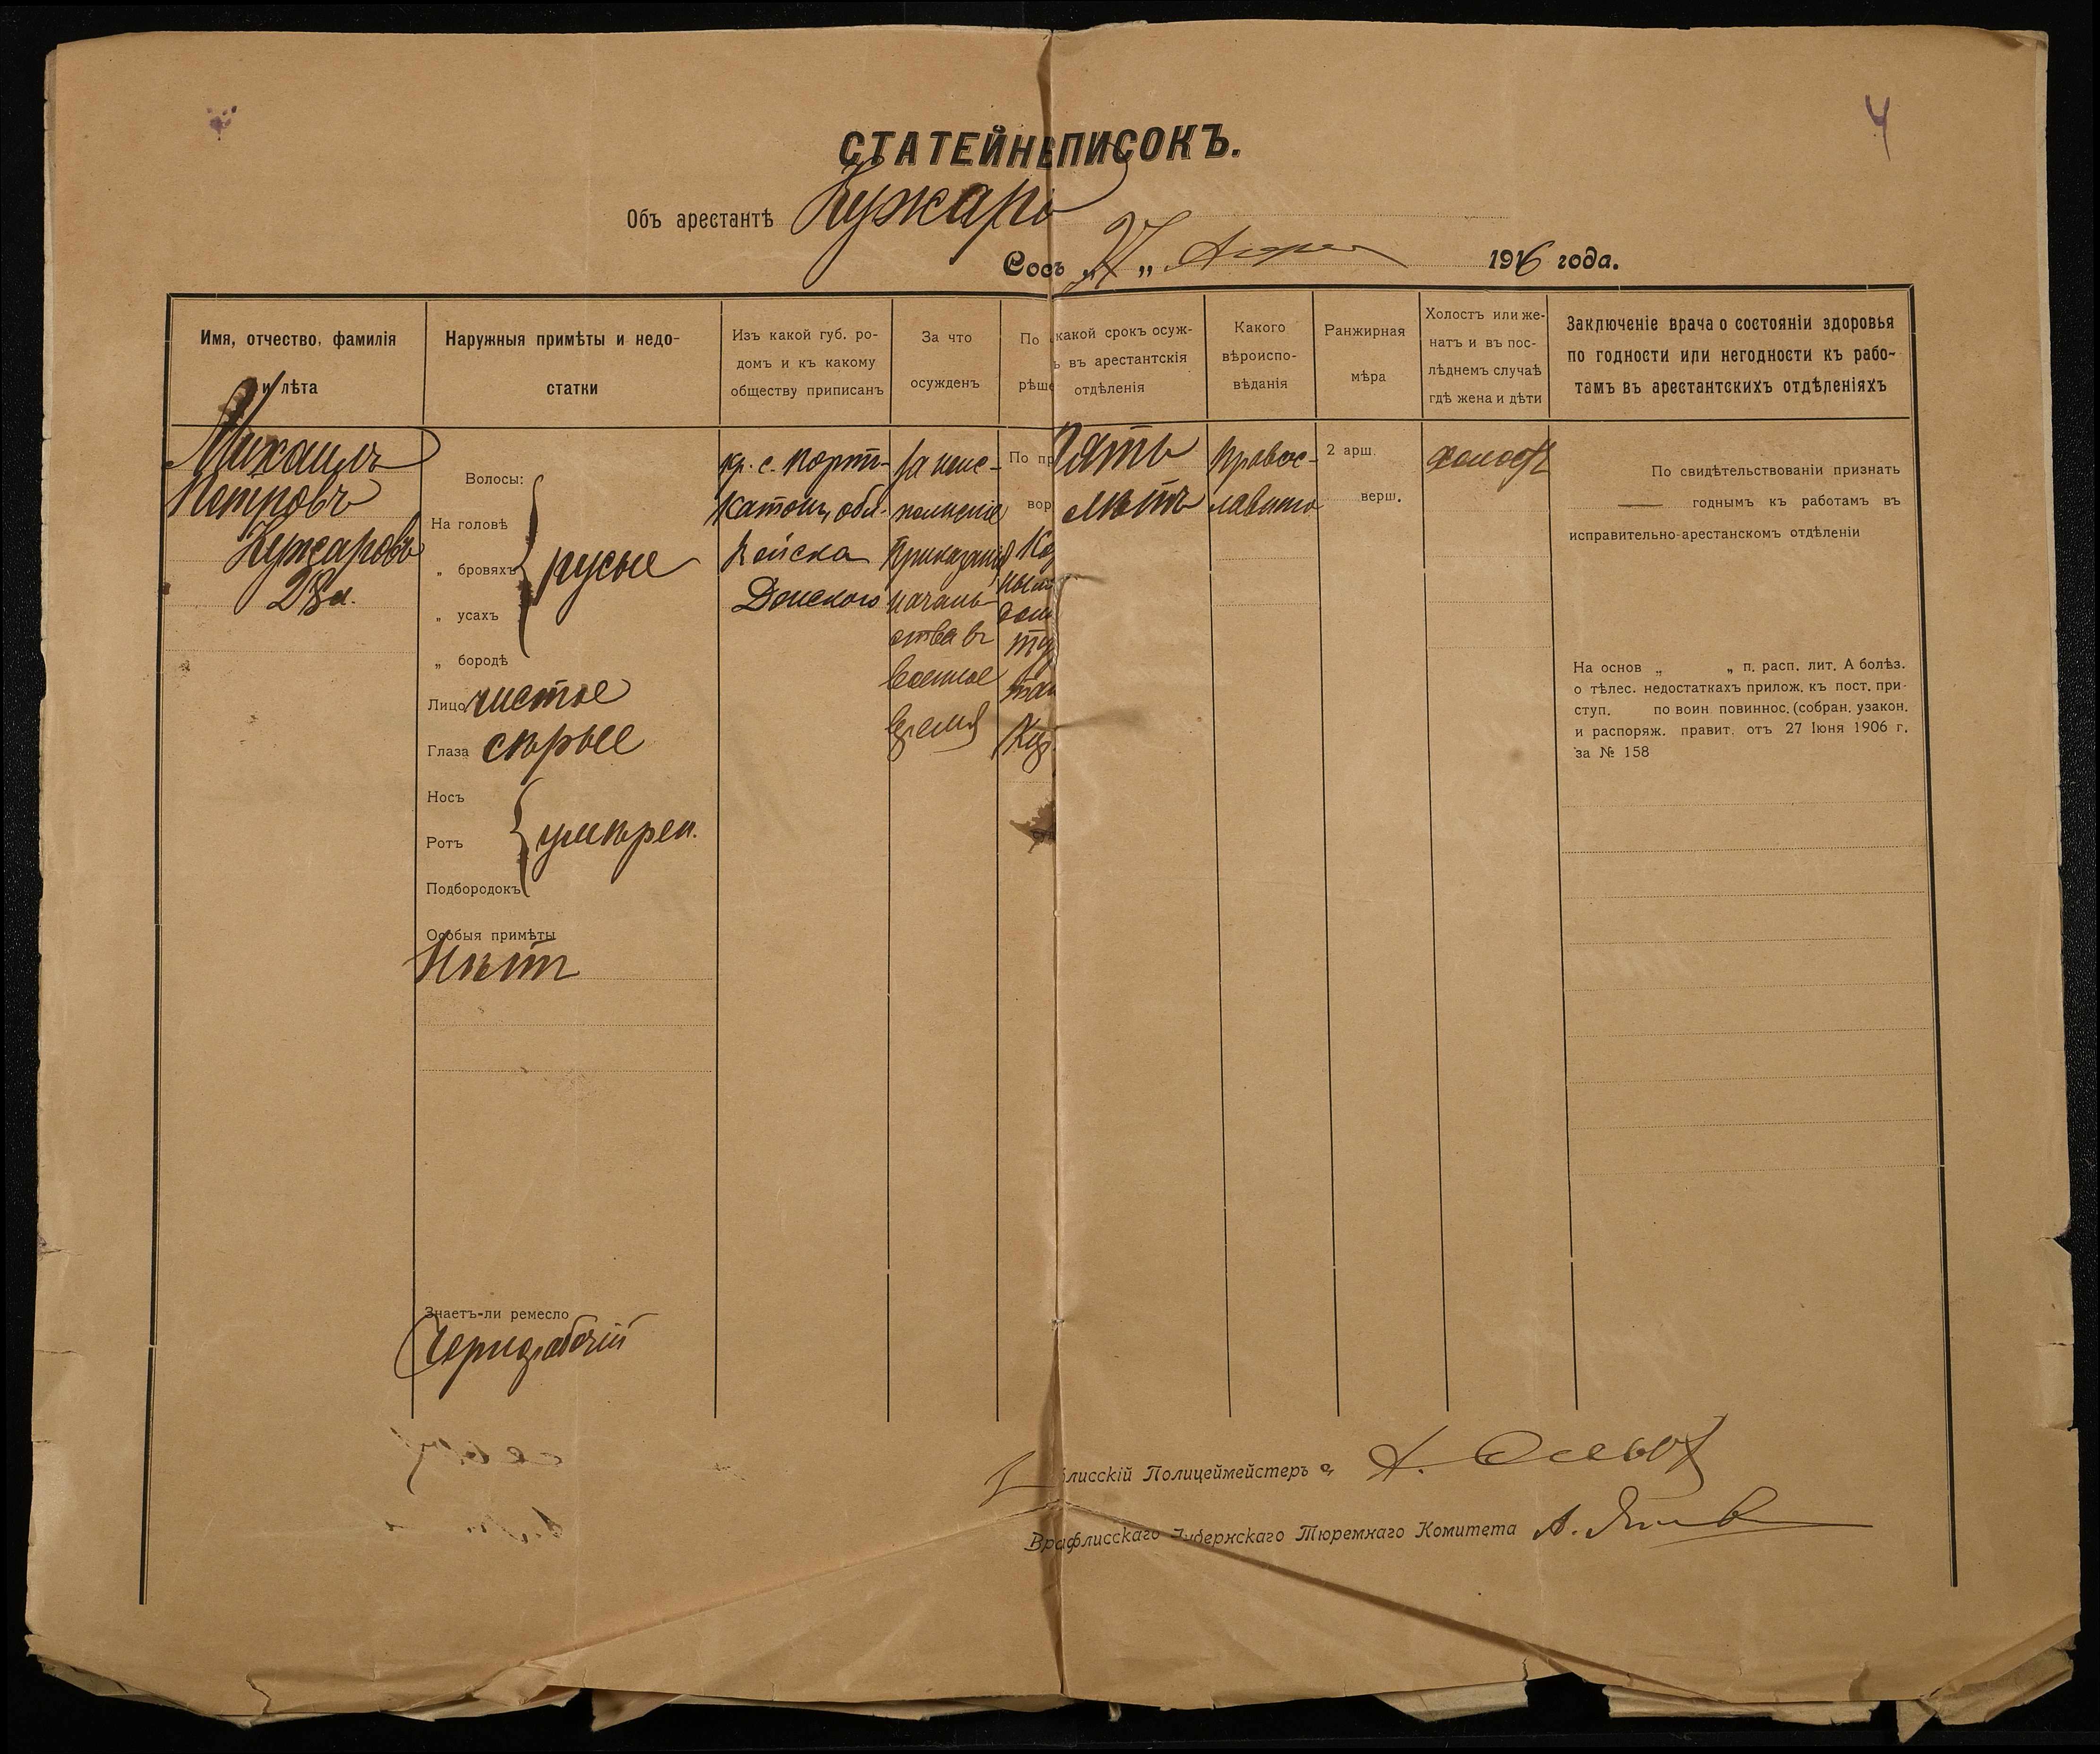 4
СТАТЕЙН ПИСОКЪ.
Объ арестантѣ Кужаро
Сос „27„ 1916 года.
Имя, отчество, фамилія
и лѣта
Наружныя примѣты и недо-
статки
Изъ какой губ. ро-
домъ и къ какому
обществу приписанъ
За что
осужденъ
По
рѣше
какой срокъ осуж-
ъ въ арестантскія
отдѣленія
Какого
вѣроиспо-
вѣданія
Ранжирная
мѣра
Холостъ или же-
натъ и въ пос-
лѣднемъ случаѣ
гдѣ жена и дѣти
Заключеніе врача о состояніи здоровья
по годности или негодности къ рабо-
тамъ въ арестантскихъ отдѣленіяхъ
Михаилъ
Петровъ
Кужаровъ
28 л.
Волосы:
На головѣ
„ бровяхъ русые
„ усахъ
„ бородѣ
Лицо чистое
Глаза сѣрые
Носъ
Ротъ умѣрен.
Подбородокъ
Особыя примѣты
Нѣтъ
Знаетъ-ли ремесло
Чернорабочій
кр. с. Порт-
Катонъ, обл.
Войска
Донского
за неис-
полненіе
Приказанія
началь-
ства въ
военное
время
По пр
вор
Пять
лѣтъ
Правос-
лавнаго
2 арш.
верш.
холостъ
По свидѣтельствованіи признать
годнымъ къ работамъ въ
исправительно-арестанскомъ отдѣленіи
На основ „ „ п. расп. лит. А болѣз.
о тѣлес. недостаткахъ прилож. къ пост. при-
ступ. по воин. повиннос. (собран. узакон.
и распоряж. правит. отъ 27 Іюня 1906 г.
за № 158
лисскій Полицеймейстеръ
Вр флисскаго Губернскаго Тюремнаго Комитета